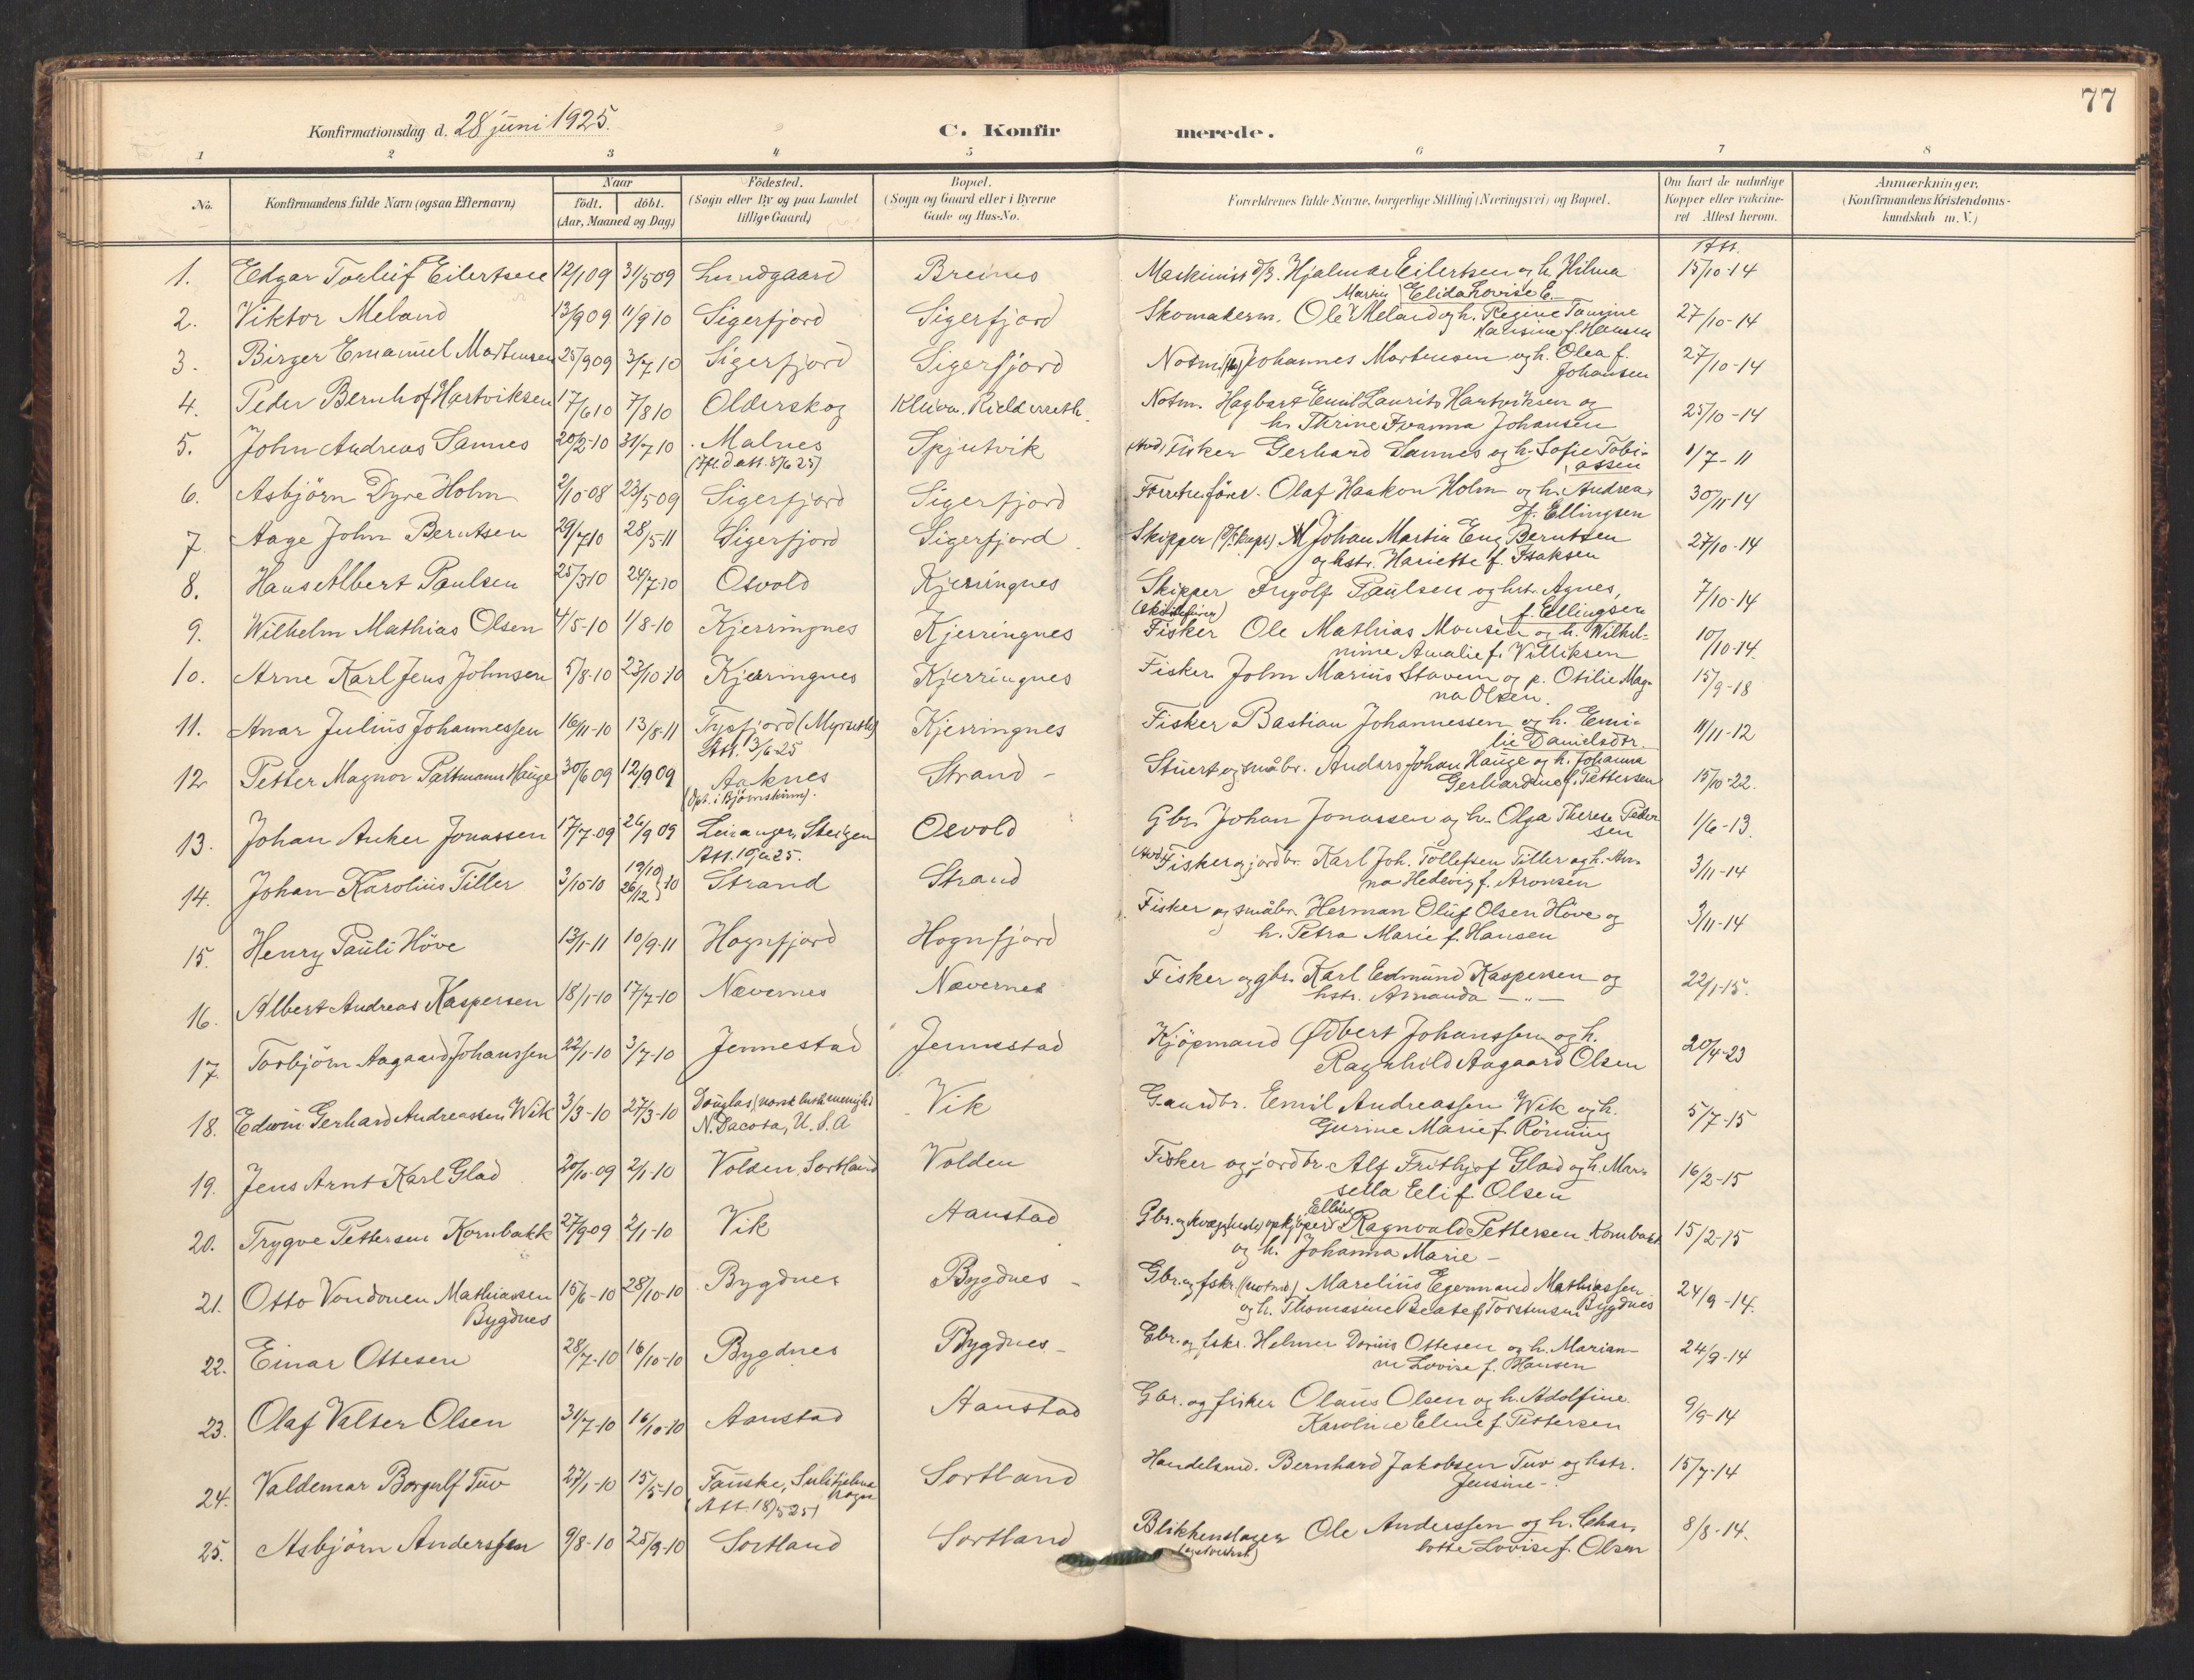 77
Konfirmationsdag d. 28 juni 1925.
C. Konfirmerede.
1 2 3 4 5 6 7 8
No.
Konfirmandens fulde Navn (ogsaa Efternavn)
Naar
født. døbt.
(Aar, Maaned og Dag)
Födested.
(Sogn eller By og paa Landet
tillige Gaard)
Bopæl.
(Sogn og Gaard eller i Byerne
Gade og Hus-No.
Forældrenes fulde Navne, borgerlige Stilling (Næringsvei) og Bopæl.
Om havt de naturlige
Kopper eller vakcine-
ret Attest herom.
Anmærkninger.
(Konfirmandens Kristendoms-
kundskab m. V.)
Att.
1. Edgar Torleif Eilertsen 12/1 09 31/5 09 Lundgaard Breines Maskinist d/s. Hjalmar Eilertsen og h. Hilma 15/10-14
Elida Lovise E.
2. Viktor Meland 13/9 09 11/9 10 Sigerfjord Sigerfjord Skomakerm. Ole Martin Meland og h. Regine 27/10-14
Hansine f. Hansen
3. Birger Emanuel Martinsen 25/9 09 3/7 10 Sigerfjord Sigerfjord Notm. Johannes Martinsen og h. Olea f. 27/10-14
Johansen
4. Peder Bernhof Hartviksen 17/6 10 7/8 10 Olderskog Kleiva. Notm. Hagbart Emil Laurits Hartviksen og 25/10-14
h. Thrine Ivanna Johansen
5. John Andreas Sannes 20/2-10 31/7 10 Malnes Spjutvik Fisker Gerhard Sannes og h. Sofie Tobi- 1/7-11
assen
6. Asbjörn Dyre Holm 2/10-08 23/5 09 Sigerfjord Sigerfjord Forretn.förer. Olaf Haakon Holm og h. Andrea 30/11-14
f. Ellingsen
7. Aage John Berntsen 29/7 10 28/5-11 Sigerfjord Sigerfjord Skipper Johan Martin Eng Berntsen 27/10-14
og hstr. Hariette f. Isaksen
8. Hans Albert Paulsen 25/3 10 24/7-10 Osvold Kjerringnes Skipper Ingolf Paulsen og hstr. Agnes, 7/10-14
f. Ellingsen
9. Wilhelm Mathias Olsen 4/5-10 1/8-10 Kjerringnes Kjerringnes Fisker Ole Mathias Monsen og h. Wilhel- 10/10-14.
mine Amalie f. Villiksen
10. Arne Karl Jens Johnsen 5/8-10 23/10-10 Kjerringnes Kjerringnes Fisker John Marius Stavem og p. Otilie Mag- 15/9-18
na Olsen.
11. Anar Julius Johannessen 16/11-10 13/8-11 Tysfjord Kjerringnes Fisker Bastian Johannessen og h. Emi- 11/11-12
Att. 13/6-25 lie Danielsdtr.
12. Petter Magnor Hauge 30/6 09 12/9 09 Aaknes Strand - Stuert og småbr. Anders Johan Hauge og h. Johanna 15/10-22.
(Döpt. i Bjørnskinn). Gerhardine f. Pettersen
13. Johan Anker Jonassen 17/7-09 26/9 09 Leiranger, Steigen Osvold Gbr. Johan Jonassen og h. Olga Therese Peder 1/6-13.
sen
14. Johan Karolius Tiller 3/10-10 19/10 26/12 }10 Strand Strand Fisker og jordbr. Karl Joh. Tollefsen Tiller og h. An- 3/11-14
na Hedevig f. Aronsen
15. Henry Pauli Höve 13/1-11 10/9-11 Hognfjord Hognfjord Fisker og småbr. Herman Oluf Olsen Höve og 3/11-14
h. Petra Marie f. Hansen
16. Albert Andreas Kaspersen 18/1-10 17/7-10 Nævernes Nævernes Fisker og gbr. Karl Edmund Kaspersen og 22/1-15.
hstr. Amanda — „ —
17. Torbjörn Aagaard Johanssen 22/1-10 3/7-10 Jennestad Jennestad Kjöpmand Ødbert Johanssen og h. 20/4-23
Ragnhild Aagaard Olsen
18. Edwin Gerhard Andreassen Wik 3/3-10 27/3-10 Douglas (norsk luth menighed Vik Gaardbr. Emil Andreassen Wik og h. 5/7-15
N. Dacota, U.S.A Gurine Marie f. Rönning
19. Jens Arnt Karl Glad 20/10-09 2/1-10 Volden, Sortland Volden Fisker og jordbr. Alf Frithjof Glad og h. Mar- 16/2-15
sella Eli f. Olsen
20. Trygve Pettersen Kornbakk 27/9-09 2/1-10 Vik Aanstad Gbr. og Ragnvald Pettersen Kornbakk 15/2-15
og h. Johanna Marie -
21. Otto Vondonen Mathiassen 15/6-10 28/10-10 Bygdnes Bygdnes - Gbr. og fskr. Marelius Egenmand Mathiassen 24/9-14.
Bygdnes og h. Thomasine Beate f. Torstensen Bygdnes
22. Einar Ottesen 28/7-10 16/10-10 Bygdnes Bygdnes - Gbr. og fskr. Helmer Darius Ottesen og h. Marian- 24/9-14
ne Lovise f. Hansen
23. Olaf Valter Olsen 31/7-10 16/10-10 Aanstad Aanstad Gbr. og fisker Olaus Olsen og h. Adolfine 9/9-14
Karoline Eline f. Pettersen
24. Valdemar Borgulf Tuv 27/1-10 15/5-10 Fauske, Sulitjelma Sortland Handelsmd. Bernhard Jakobsen Tuv og hstr. 15/7-14
(Att. 18/5 25) sogn Jensine -
25. Asbjörn Anderssen 9/8-10 25/9-10 Sortland Sortland Blikkenslager Ole Anderssen og h. Char- 8/8-14.
lotte Lovise f. Olsen